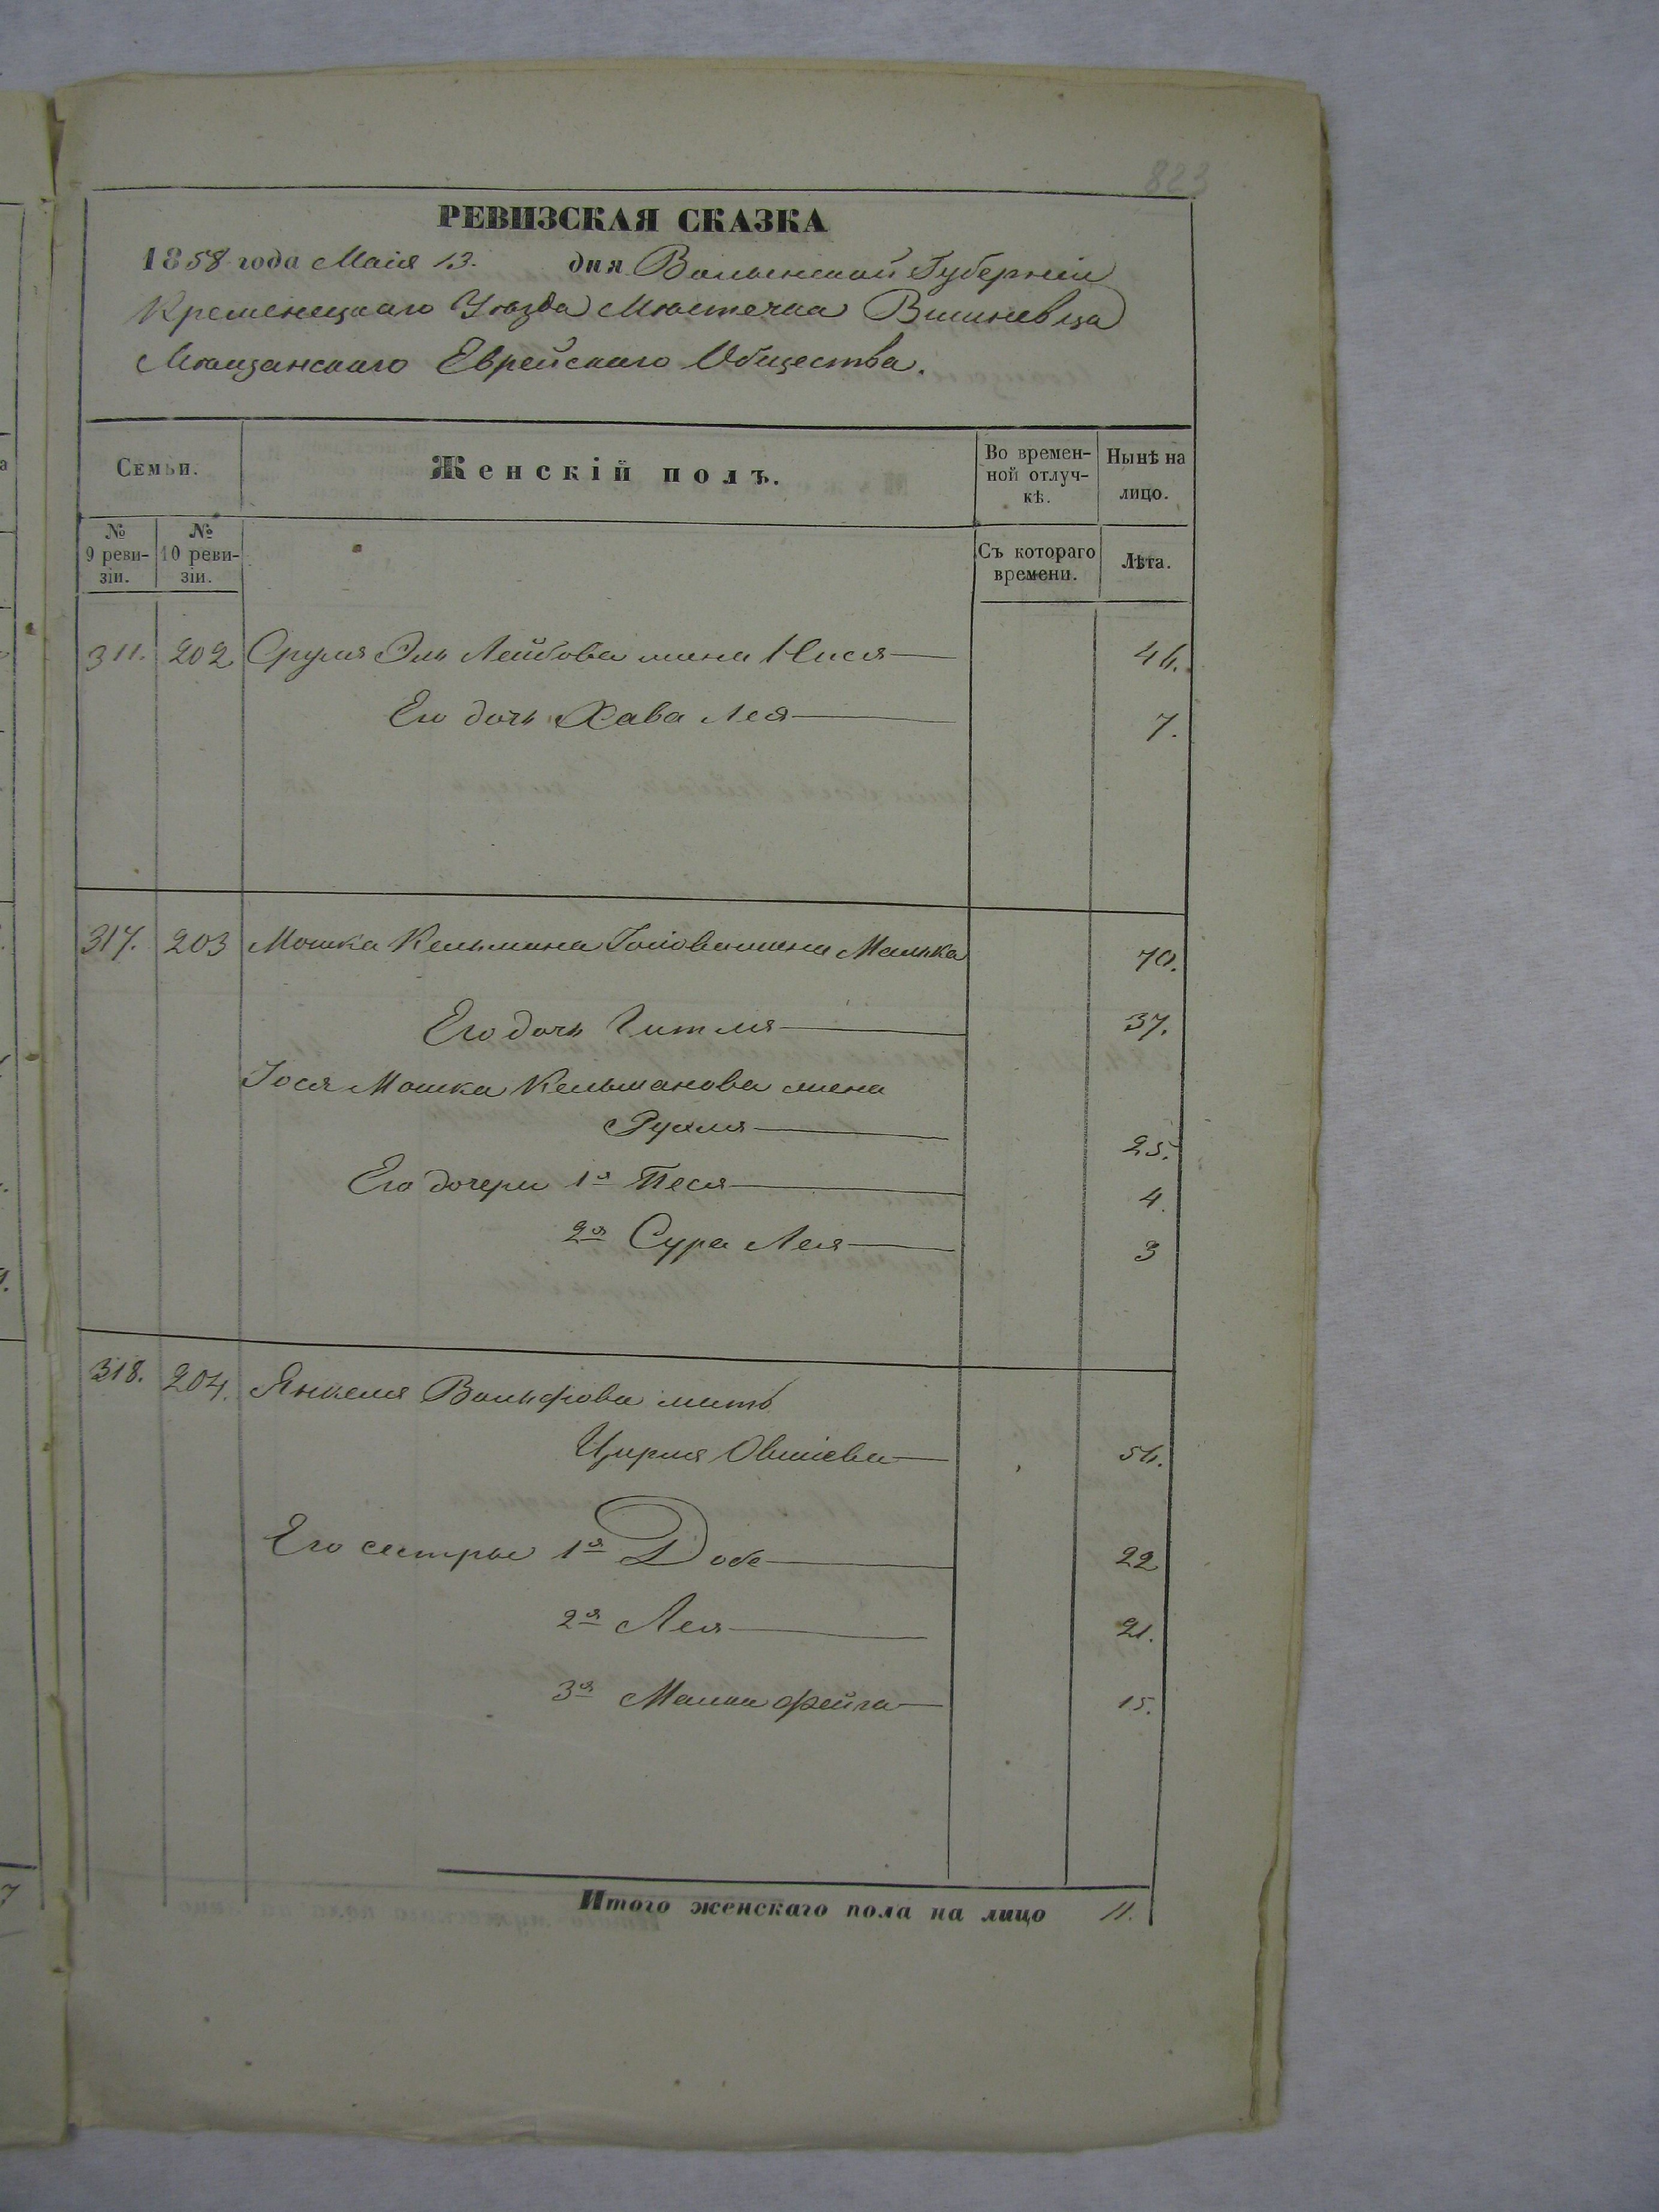 823
РЕВИЗСКАЯ СКАЗКА
1858 года Маія 13. дня Волынской Губерніи
Кременецкаго Уѣзда Мѣстечка Вишневца
Мѣщанскаго Еврейскаго Общества.
Семьи. Женскій полъ. Во времен-ной отлуч-кѣ. Нынѣ на лицо.
№ 9 реви-зіи. № 10 реви-зіи. Съ котораго времени. Лѣта.
311. 202 Сруля Эль Лейбова жена Нися 46.
Его дочь Хава Лея 7.
317. 203 Мошка Кельмана жена Малька 70.
Его дочь Гитля 37.
Іося Мошка Кельманова жена
Рухля 25.
Его дочери 1я Песя 4.
2я Сура Лея 3
318. 204. Янкеля Вольфова мать
Цирля Овшіева 56.
Его сестры 1я Добе 22
2я Лея 21.
3я Малка Фейга 15.
Итого женскаго пола на лицо 11.